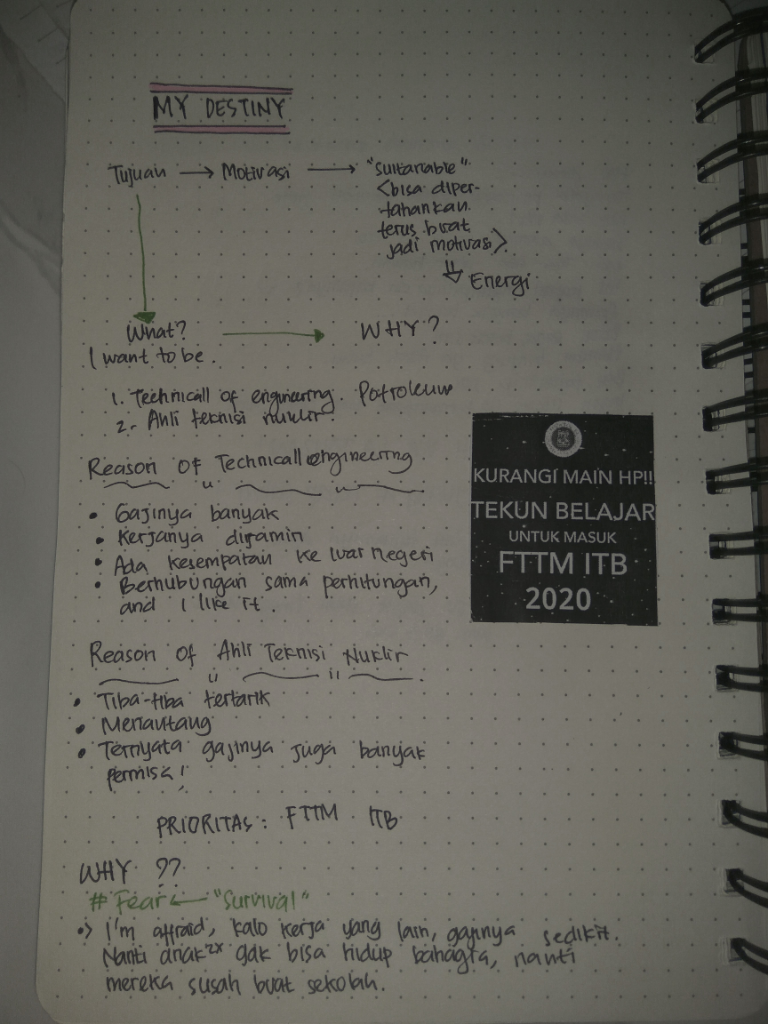 MY DESTINY
Tujuan → Motivasi → "Suitanable"
<bisa diper-
tahankan
terus buat
jadi motivasi>
⇓ Energi
What? → WHY?
I want to be.
1. Technicall of engineering. Patroleum
2. Ahli teknisi nuklir.
Reason Of Technicall engineering
• Gajinya banyak
• Kerjanya dijamin
• Ada kesempatan ke luar negeri
• Berhubungan sama perhitungan,
and I like it.
KURANGI MAIN HP!!
TEKUN BELAJAR
UNTUK MASUK
FTTM ITB
2020
Reason Of Ahli Teknisi Nuklir
• Tiba-tiba tertarik
• Menantang
• Ternyata gajinya juga banyak
PRIORITAS: FTTM ITB
WHY ??
# Fear ← "Survival"
•> I'm affraid, kalo kerja yang lain, gajinya sedikit.
Nanti anak²ˣ gak bisa hidup bahagia, nanti
mereka susah buat sekolah.